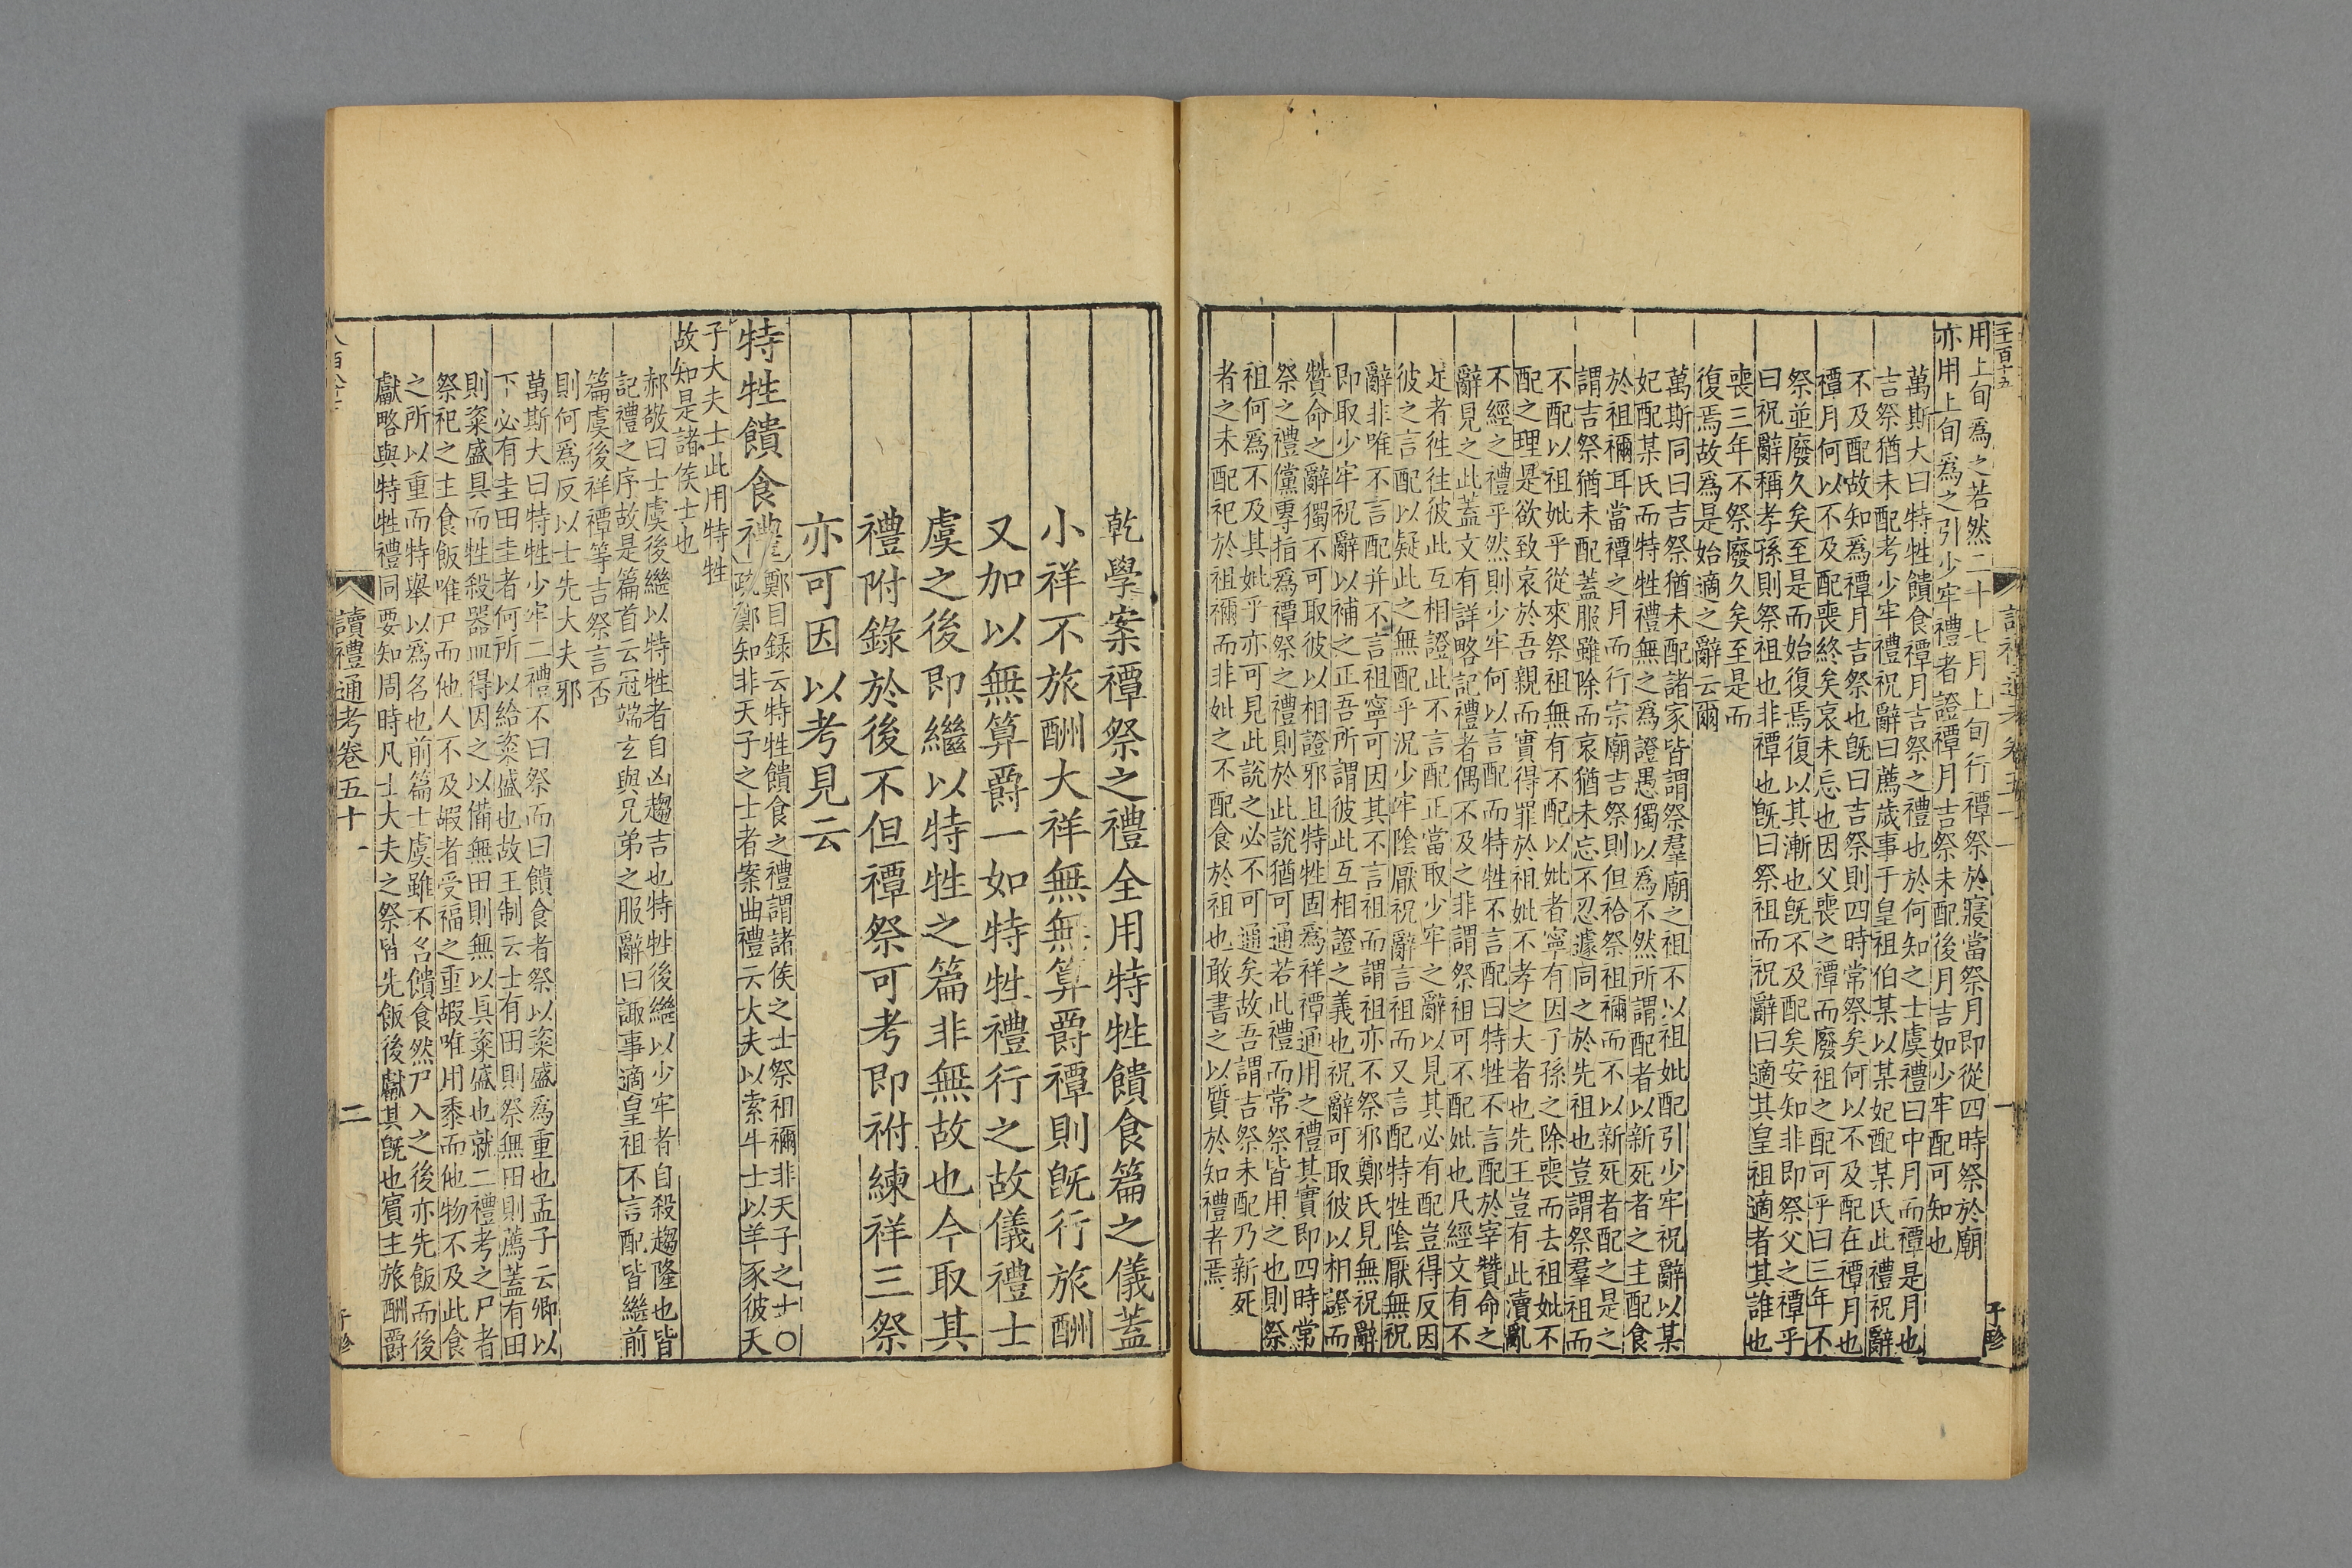 用上旬爲之若然二十七月上旬行禫祭於寢當祭月即從四時祭於廟
亦用上旬爲之引少牢禮者證禫月吉祭未配後月吉如少牢配可知也
萬斯大曰特牲饋食禫月吉祭之禮也於何知之士虞禮曰中月而禫是月也
吉祭猶未配考少牢禮祝辭曰薦歲事于皇祖伯某以某妃配某氏此禮祝辭
不及配故知爲禫月吉祭也旣曰吉祭則四時常祭矣何以不及配在禫月也
禫月何以不及配喪終矣哀未忘也因父喪之禫而廢祖之配可乎曰三年不
祭並廢久矣至是而始復焉復以其漸也旣不及配矣安知非即祭父之禫乎
曰祝辭稱孝孫則祭祖也非禫也旣曰祭祖而祝辭曰適其皇祖適者其誰也
喪三年不祭廢久矣至是而
復焉故爲是始適之辭云爾
萬斯同曰吉祭猶未配諸家皆謂祭羣廟之祖不以祖妣配引少牢祝辭以某
妃配某氏而特牲禮無之爲證愚獨以爲不然所謂配者以新死者之主配食
於祖禰耳當禫之月而行宗廟吉祭則但祫祭祖禰而不以新死者配之是之
謂吉祭猶未配蓋服雖除而哀猶未忘不忍遽同之於先祖也豈謂祭羣祖而
不配以祖妣乎從來祭祖無有不配以妣者寧有因子孫之除喪而去祖妣不
配之理是欲致哀於吾親而實得罪於祖妣不孝之大者也先王豈有此瀆亂
不經之禮乎然則少牢何以言配而特牲不言配曰特牲不言配於宰贊命之
辭見之此蓋文有詳略記禮者偶不及之非謂祭祖可不配妣也凡經文有不
足者徃徃彼此互相證此不言配正當取少牢之辭以見其必有配豈得反因
彼之言配以疑此之無配乎況少牢陰厭祝辭言祖而又言配特牲陰厭無祝
辭非唯不言配并不言祖寧可因其不言祖而謂祖亦不祭邪鄭氏見無祝辭
即取少牢祝辭以補之正吾所謂彼此互相證之義也祝辭可取彼以相證而
贊命之辭獨不可取彼以相證邪且特牲固爲祥禫通用之禮其實即四時常
祭之禮儻專指爲禫祭之禮則於此說猶可通若此禮而常祭皆用之也則祭
祖何爲不及其妣乎亦可見此說之必不可通矣故吾謂吉祭未配乃新死
者之未配祀於祖禰而非妣之不配食於祖也敢書之以質於知禮者焉
乾學案禫祭之禮全用特牲饋食篇之儀蓋
小祥不旅酬大祥無無算爵禫則旣行旅酬
又加以無算爵一如特牲禮行之故儀禮士
虞之後即繼以特牲之篇非無故也今取其
禮附錄於後不但禫祭可考即祔練祥三祭
亦可因以考見云
特牲饋食禮鄭目錄云特牲饋食之禮謂諸侯之士祭祖禰非天子之士〇
疏鄭知非天子之士者案曲禮云大夫以索牛士以羊豕彼天
子大夫士此用特牲
故知是諸侯士也
郝敬曰士虞後繼以特牲者自凶趨吉也特牲後繼以少牢者自殺趨隆也皆
記禮之序故是篇首云冠端玄與兄弟之服辭曰諏事適皇祖不言配皆繼前
篇虞後祥禫等吉祭言否
則何爲反以士先大夫邪
萬斯大曰特牲少牢二禮不曰祭而曰饋食者祭以粢盛爲重也孟子云卿以
下必有圭田圭者何所以給粢盛也故王制云士有田則祭無田則薦蓋有田
則粢盛具而牲殺器皿得因之以備無田則無以具粢盛也就二禮考之尸者
祭祀之主食飯唯尸而他人不及嘏者受福之重嘏唯用黍而他物不及此食
之所以重而特舉以爲名也前篇士虞雖不名饋食然尸入之後亦先飯而後
獻略與特牲禮同要知周時凡士大夫之祭皆先飯後獻其旣也賓主旅酬爵
讀禮通考卷五十一
二